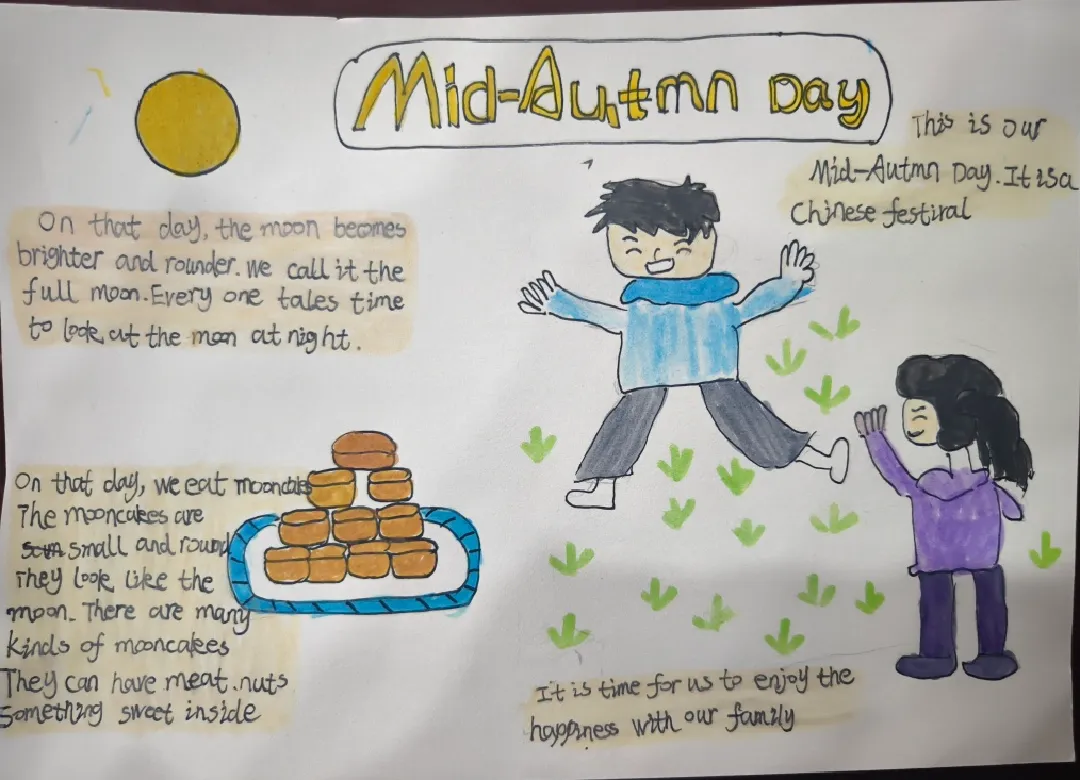 Mid-Autmn Day
This is our
Mid-Autmn Day. It is a
Chinese festiral
On that day, the moon becomes
brighter and rounder. We call it the
full moon. Every one tales time
to look at the moon at night.
On that day, we eat mooncakes
The mooncakes are
small and round
They look like the
moon. There are many
kinds of mooncakes
They can have meat, nuts
something sweet inside
It is time for us to enjoy the
happiness with our family